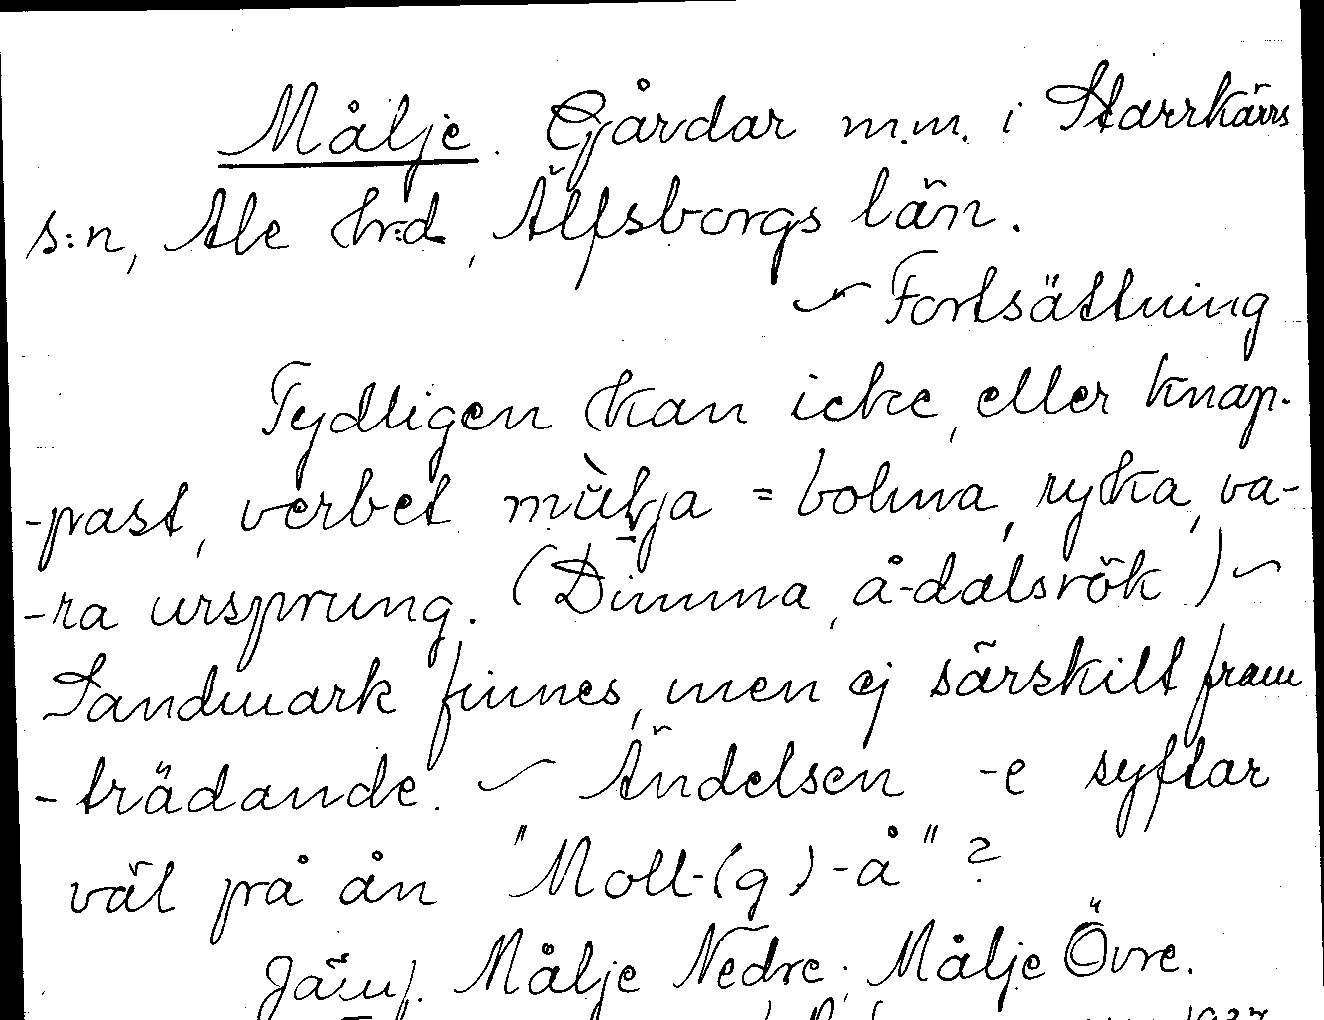 Målje. Gårdar m.m. i Starrkärrs
s:n, Ale hrd, Älfsborgs län.
~ Fortsättning
Tydligen kan icke, eller knap-
-past, verbet mùlja = bolma, ryka, va-
-ra ursprung. (Dimma, å-dalsrök) ~
Sandmark finnes, men ej särskilt fram
-trädande. ~ Ändelsen -e syftar
väl på ån "Moll-(g)-å"?
Jämf. Målje Nedre; Målje Övre.
1937